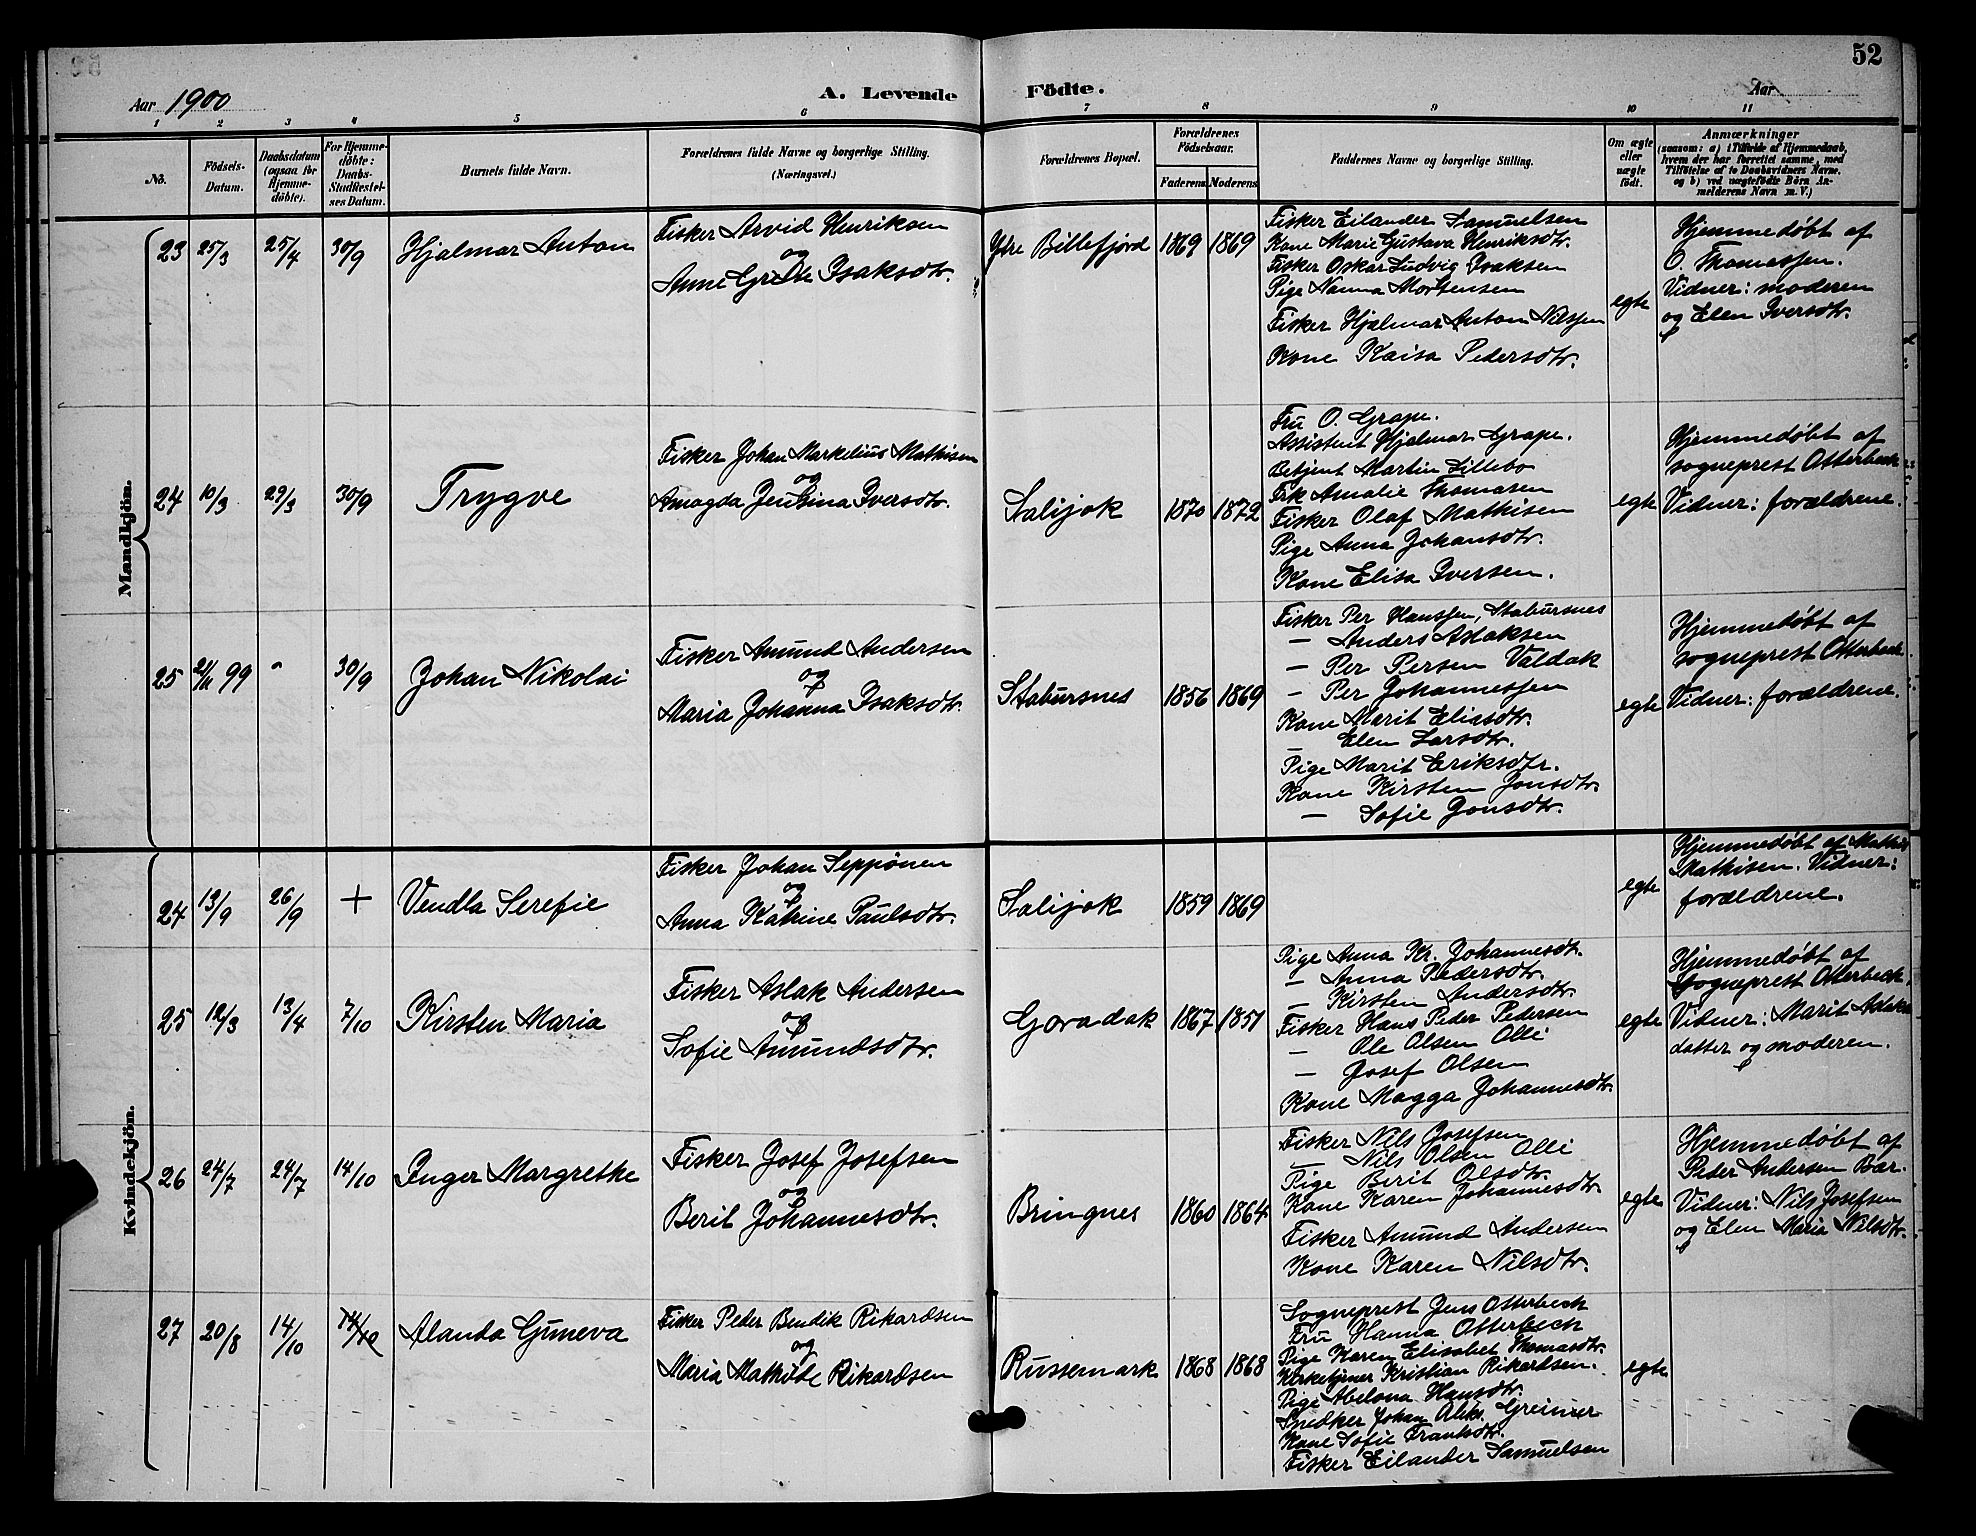 52
Aar 1900
A. Levende Födte.
Aar
1 2 3 4 5 6 7 8 9 10 11
No.
Födsels-Datum.
Daabsdatum (ogsaa for Hjemme-döbte).
For Hjemme-döbte: Daabs-Stadfæstel-ses Datum.
Barnets fulde Navn.
Forældrenes fulde Navne og borgerlige Stilling. (Næringsvei.)
Forældrenes Bopæl.
Forældrenes Födselsaar.
Faderens Moderens
Faddernes Navne og borgerlige Stilling.
Om ægte eller uægte födt.
Anmærkninger
(saasom: a) i Tilfælde af Hjemmedaab, hvem der har forrettet samme, med Tilföielse af to Daabsvidners Navne, og b) ved uægtefödte Börn An-melderens Navn m. V.)
Mandkjön.
23 25/3 25/4 30/9 Hjalmar Anton
Fisker Arvid Henriksen
og
Anne Grethe Isaksdtr.
Ytre Billefjord 1869 1869
Fisker Eilander Samuelsen
Kone Marie Gustava Henriksdtr.
Fisker Oskar Ludvig Isaksen
Pige Nanna Mortensen
Fisker Hjalmar Anton Nilssen
Kone Kaisa Pedersdtr.
egte
Hjemmedøbt af
O. Thomassen.
Vidner: moderen
og Elen Iversdtr.
24 10/3 29/3 30/9 Trygve
Fisker Johan Markelius Mathisen
og
Amagda Jensina Iversdtr.
Salijok 1870 1872
Fru O. Grape.
Assistent Hjalmar Grape.
Betjent Martin Lillebo
Frk Amalie Thomasen
Fisker Olaf Mathisen
Pige Anna Johansdtr.
Kone Elisa Iversen.
egte
Hjemmedøbt af
sogneprest Otterbeck
Vidner: forældrene.
25 21/11 99 " 30/9 Johan Nikolai
Fisker Amund Andersen
og
Maria Johanna Isaksdtr.
Stabursnes 1856 1869
Fisker Per Hanssen, Stabursnes
— Anders Aslaksen
— Per Persen Valdak
— Per Johannessen
Kone Marit Eliasdtr.
— Elen Larsdtr.
Pige Marit Eriksdtr.
Kone Kirsten Jonsdtr.
— Sofie Jonsdtr.
egte
Hjemmedøbt af
sogneprest Otterbeck.
Vidner: forældrene.
Kvindekjön.
24 13/9 26/9 + Vendla Serefie
Fisker Johan Seppönen
og
Anna Katrine Paulsdtr.
Salijok 1859 1869
egte
Hjemmedøbt af Mathis
Mathisen. Vidner:
forældrene.
25 12/3 13/4 7/10 Kirsten Maria
Fisker Aslak Andersen
og
Sofie Amundsdtr.
Goradak 1867 1851
Pige Anna Kr. Johannesdt.
— Anna Pedersdtr.
— Kirsten Andersdtr.
Fisker Hans Peder Pedersen
— Ole Olsen Olli
— Josef Olsen
Kone Magga Johannesdtr.
egte
Hjemmedøbt af
Sogneprest Otterbeck.
Vidner: Marit Aslaks
datter og moderen.
26 24/7 24/7 14/10 Inger Margrethe
Fisker Josef Josefsen
og
Berit Johannesdtr.
Bringnes 1860 1864
Fisker Nils Josefsen
— Nils Olsen Olli
Pige Berit Olsdtr.
Kone Karen Johannesdtr.
Fisker Amund Andersen
Kone Karen Nilsdtr.
egte
Hjemmedøbt af
Peder Andersen Bær.
Vidner: Nils Josefsen
og Elen Maria Nilsdtr.
27 20/8 14/10 14/10 Alanda Guneva
Fisker Peder Bendik Rikardsen
og
Maria Mathilde Rikardsen
Russemark 1868 1868
Sogneprest Jens Otterbech
Fru Hanna Otterbech
Pige Karen Elisabet Thomasdtr.
Kirketjener Kristian Rikardsen.
Pige Abelona Hansdtr.
Snedker Johan Aleks. Greiner
Kone Sofie Frantsdtr.
Fisker Eilander Samuelsen
egte